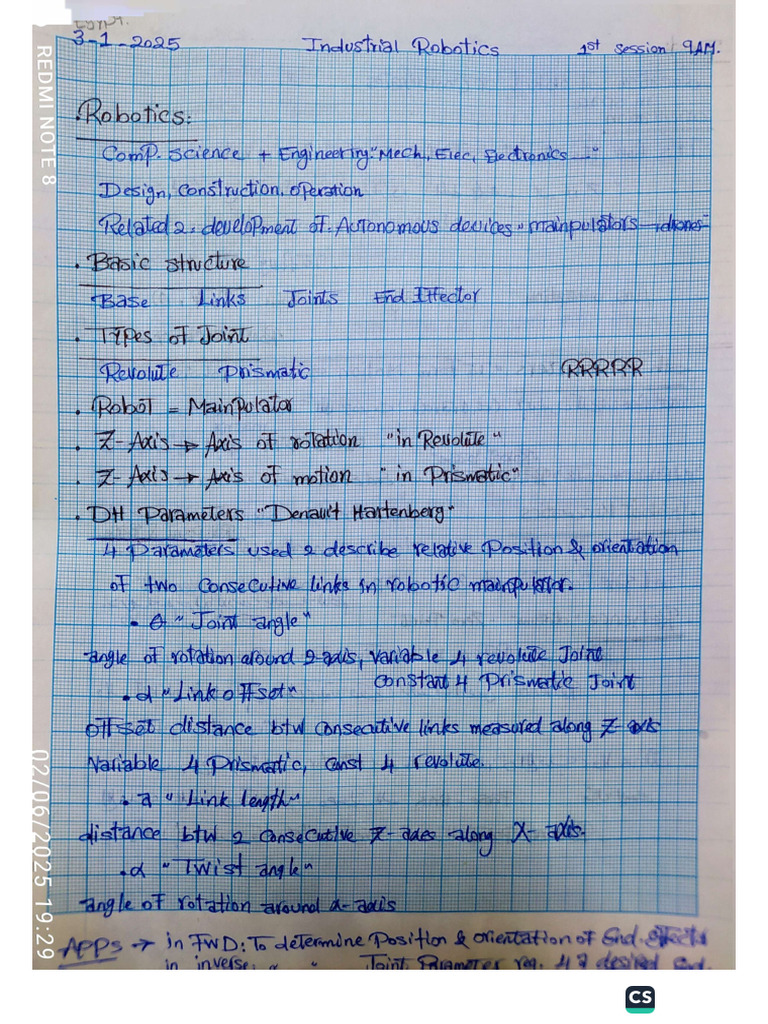 3-1-2025 Industrial Robotics 1st session 9AM.
. Robotics:
Comp. science + Engineering "Mech, Elec, Electronics ... "
Design, Construction, operation
Related 2: development of Autonomous devices "mainpulators - drones"
. Basic structure
Base Links Joints End Effector
. Types of Joint
Revolute Prismatic RRRRR
. Robot = Mainpulator
. Z-Axis → Axis of rotation "in Revolute"
. Z-Axis → Axis of motion "in Prismatic"
. DH Parameters "Denauit Hartenberg"
4 Parameters used 2 describe relative Position & orientation
of two consecutive links in robotic mainpulator.
. θ "Joint angle"
angle of rotation around z-axis, variable 4 revolute Joint
constant 4 Prismatic Joint
. d "Link offset"
offset distance btw consecutive links measured along Z-axis
Variable 4 Prismatic, const 4 revolute.
. a "Link length"
distance btw 2 consecutive Z-axes along X-axis.
. α "Twist angle"
angle of rotation around x-axis
APPs → in FWD: To determine Position & orientation of End-effects
in inverse: " " Joint Parameter req. 4 a desired End.
REDMI NOTE 8
02/06/2025 19:29
CS